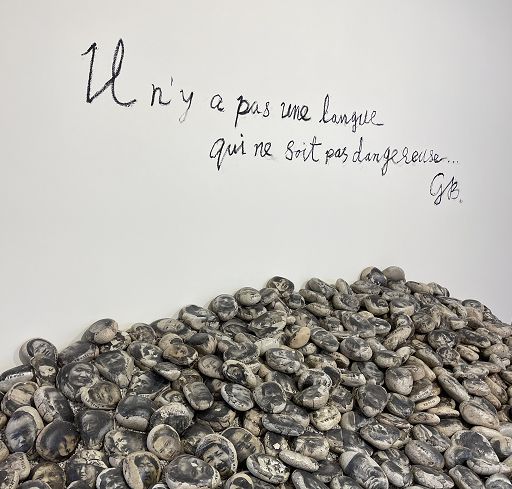 Il n'y a pas une langue
qui ne soit pas dangereuse...
GB.